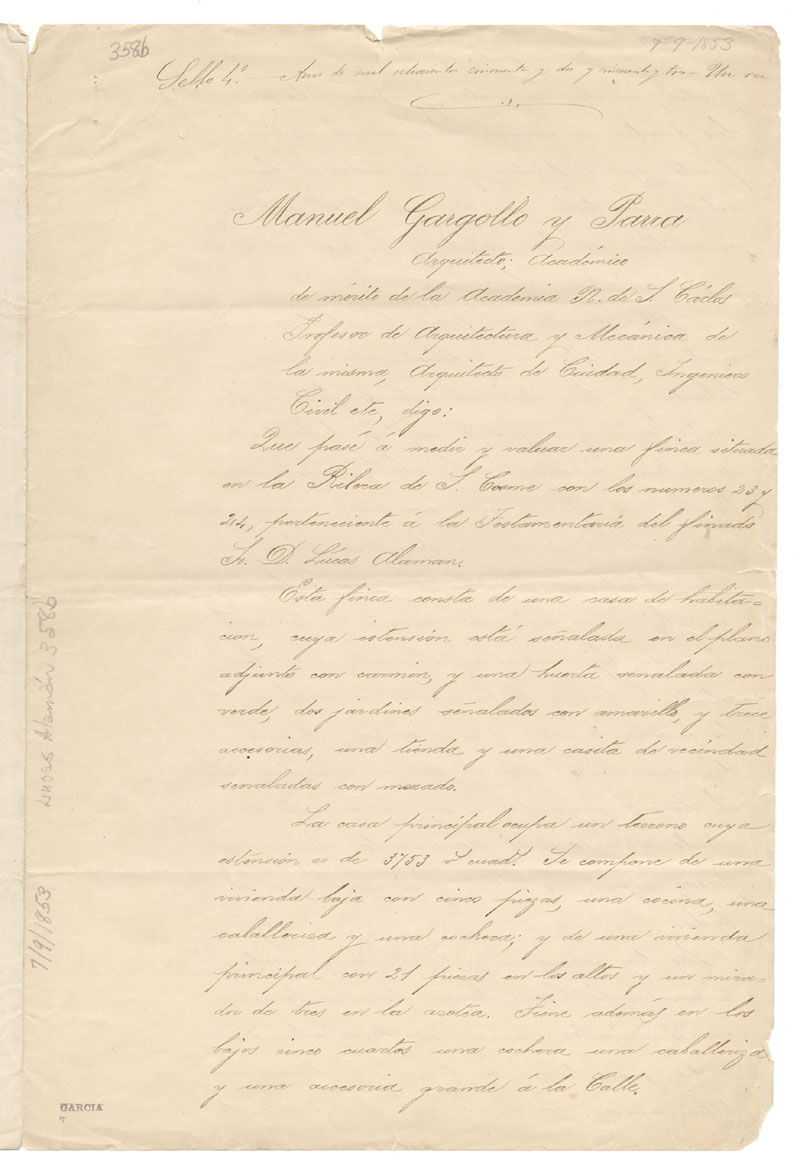 3586
7-9-1853
Sello 4.º Años de mil ochocientos cincuenta y dos y cincuenta y tres - Un rea
Manuel Gargollo y Parra
Arquitecto; Académico
de mérito de la Academia N. de S. Cárlos
Profesor de Arquitectura y Mecánica de
la misma, Arquitecto de Ciudad, Ingeniero
Civil etc, digo:
Que pasé á medir y valuar una finca situada
en la Rivera de S. Cosme con los numeros 23 y
24, perteneciente á la Testamentaría del finado
Sr. D. Lúcas Alaman.
Esta finca consta de una casa de habita-
cion, cuya estension está señalada en el plano
adjunto con carmin, y una huerta senalada con
verde, dos jardines señalados con amarillo, y trece
accesorias, una tienda y una casita de vecindad
senaladas con morado.
La casa principal ocupa un terreno cuya
estensión es de 3753 vs cuads. Se compone de una
vivienda baja con cinco piezas, una cocina, una
caballeriza y una cochera; y de una vivienda
principal con 21 piezas en los altos y un mira-
dor de tres en la azotea. Tiene además en los
bajos cinco cuartos una cochera una caballeriza
y una accesoria grande á la Calle.
Lucas Alamán 3586
7/9/1853
GARCIA
T